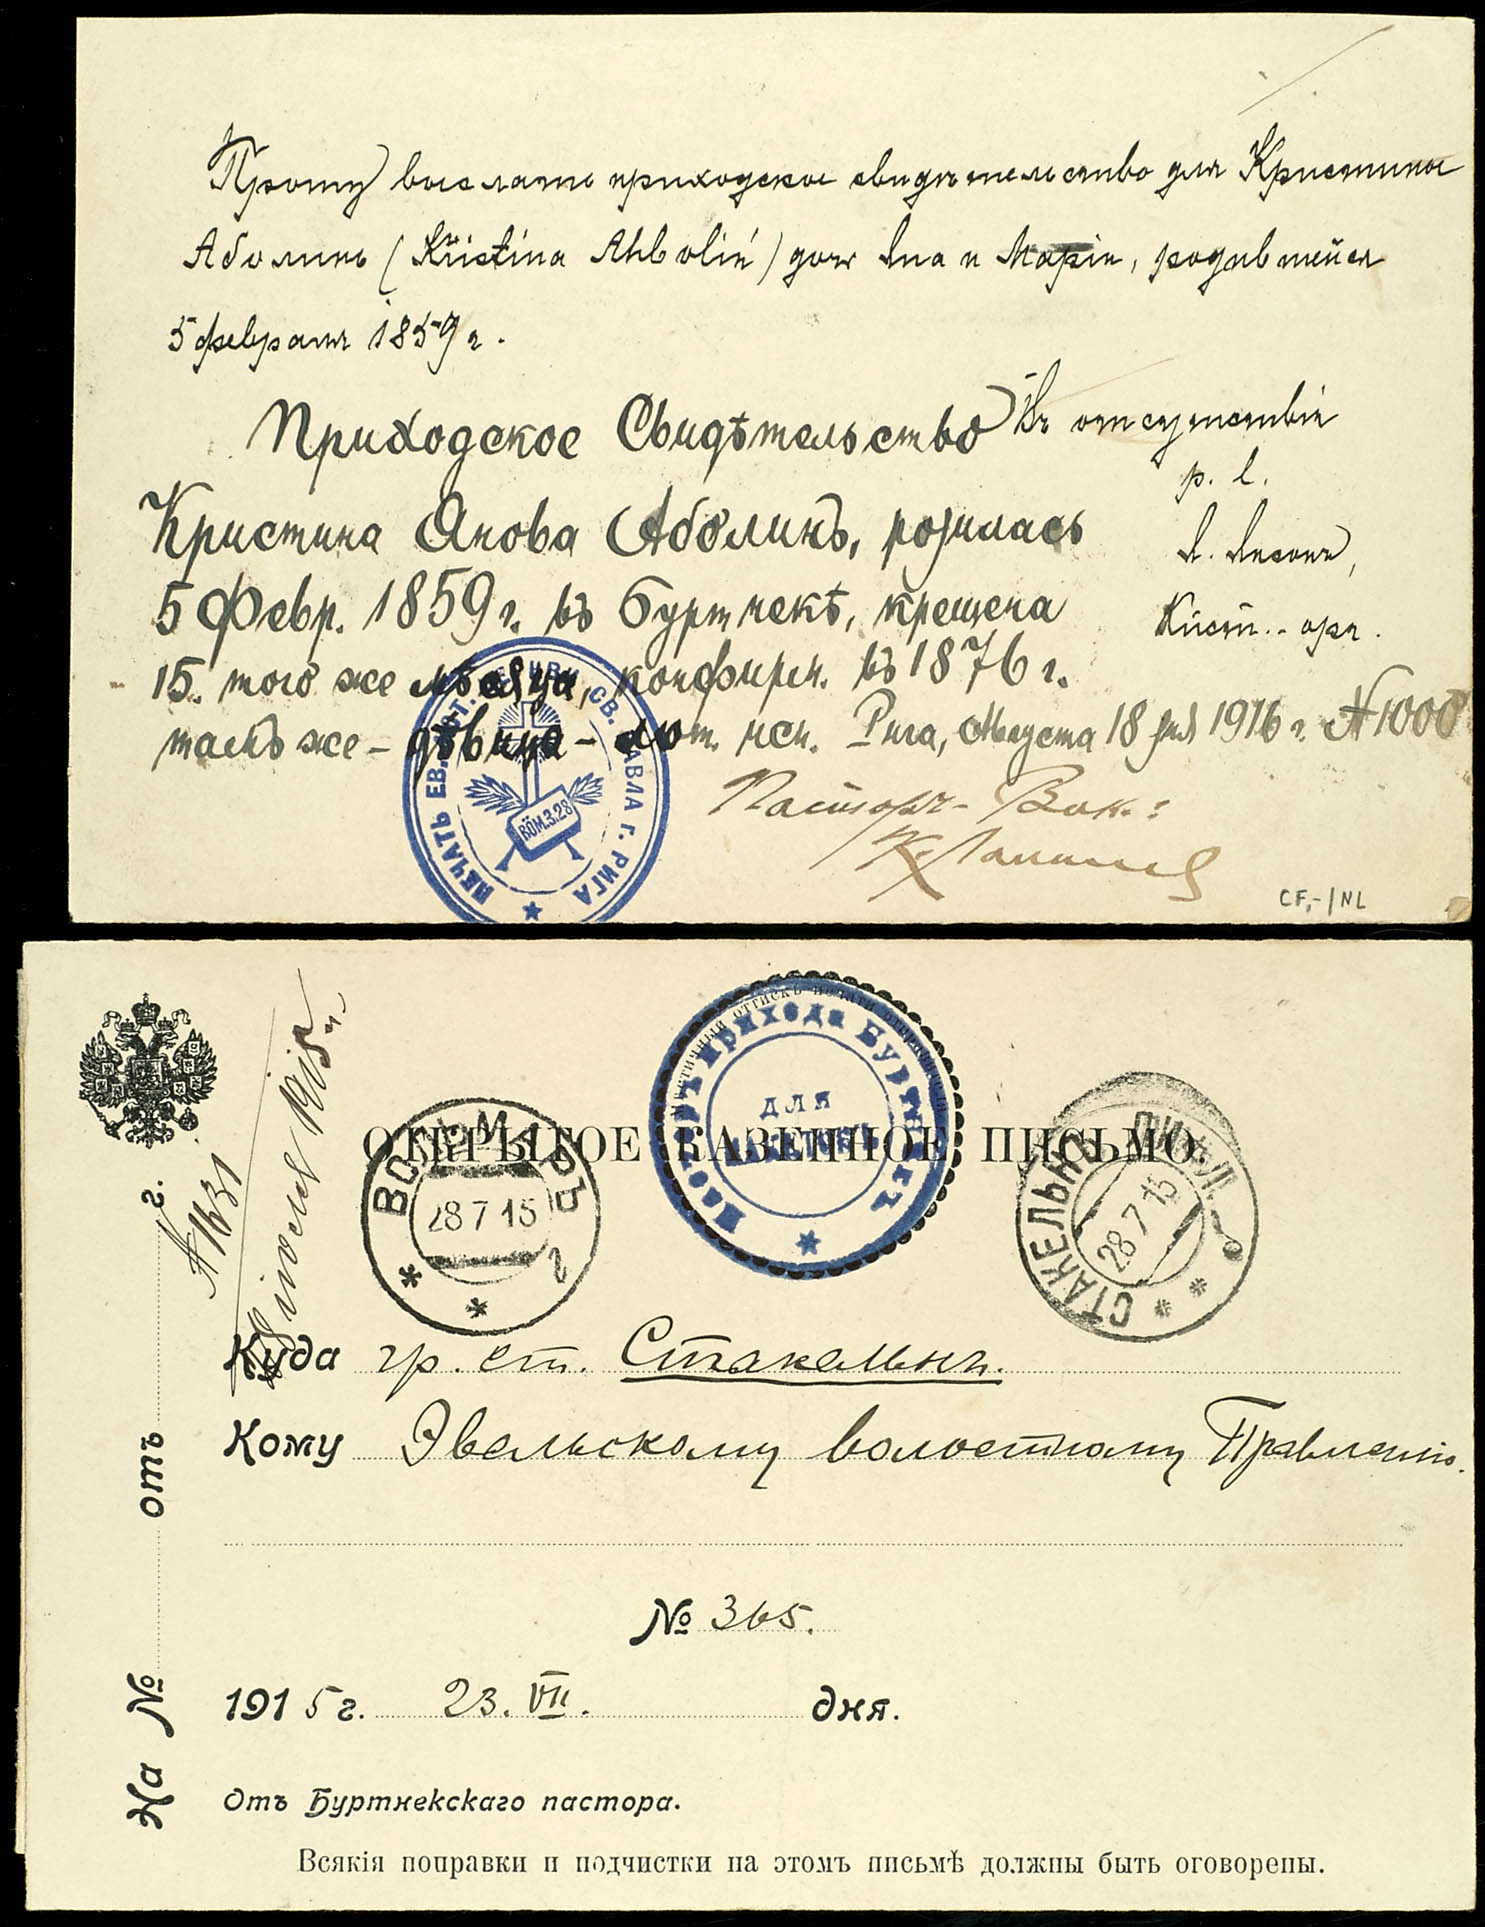 Прошу выслать приходское свидѣтельство для Кристины
Аболинь (Kristina Ahboliń) дочь Яна и Маріи, родившейся
5 февраля 1859 г.
Въ отсутствіи
р. l.
Я. Янсонъ,
Кист.-орг.
Приходское Свидѣтельство
Кристина Янова Аболинъ, родилась
5 Февр. 1859 г. въ Буртнекѣ, крещена
15. того же мѣсяца, конфирм. въ 1876 г.
тамъ же - дѣвица - лют. исп. Рига, Августа 18 дня 1916 г. № 1000
Пасторъ-Вик.:
ПЕЧАТЬ ЕВ. ЛЮТ. СВ. ПАВЛА Г. РИГА
RÖM.3.28
CF,-/NL
ОТКРЫТОЕ КАЗЕННОЕ ПИСЬМО.
ВОЛЬМАРЪ
28 7 15
г
Пасторъ прихода Буртнекъ
для
пакетовъ
СТАКЕЛЬНЪ ЛИФЛ.
28 7 15
№ 1631
1915 г.
Куда гр. ст. Стакельнъ.
Кому Эвельскому волостному Правленію.
№ 365.
1915 г. 23. VII. дня.
На № отъ г.
Отъ Буртнекскаго пастора.
Всякія поправки и подчистки на этомъ письмѣ должны быть оговорены.